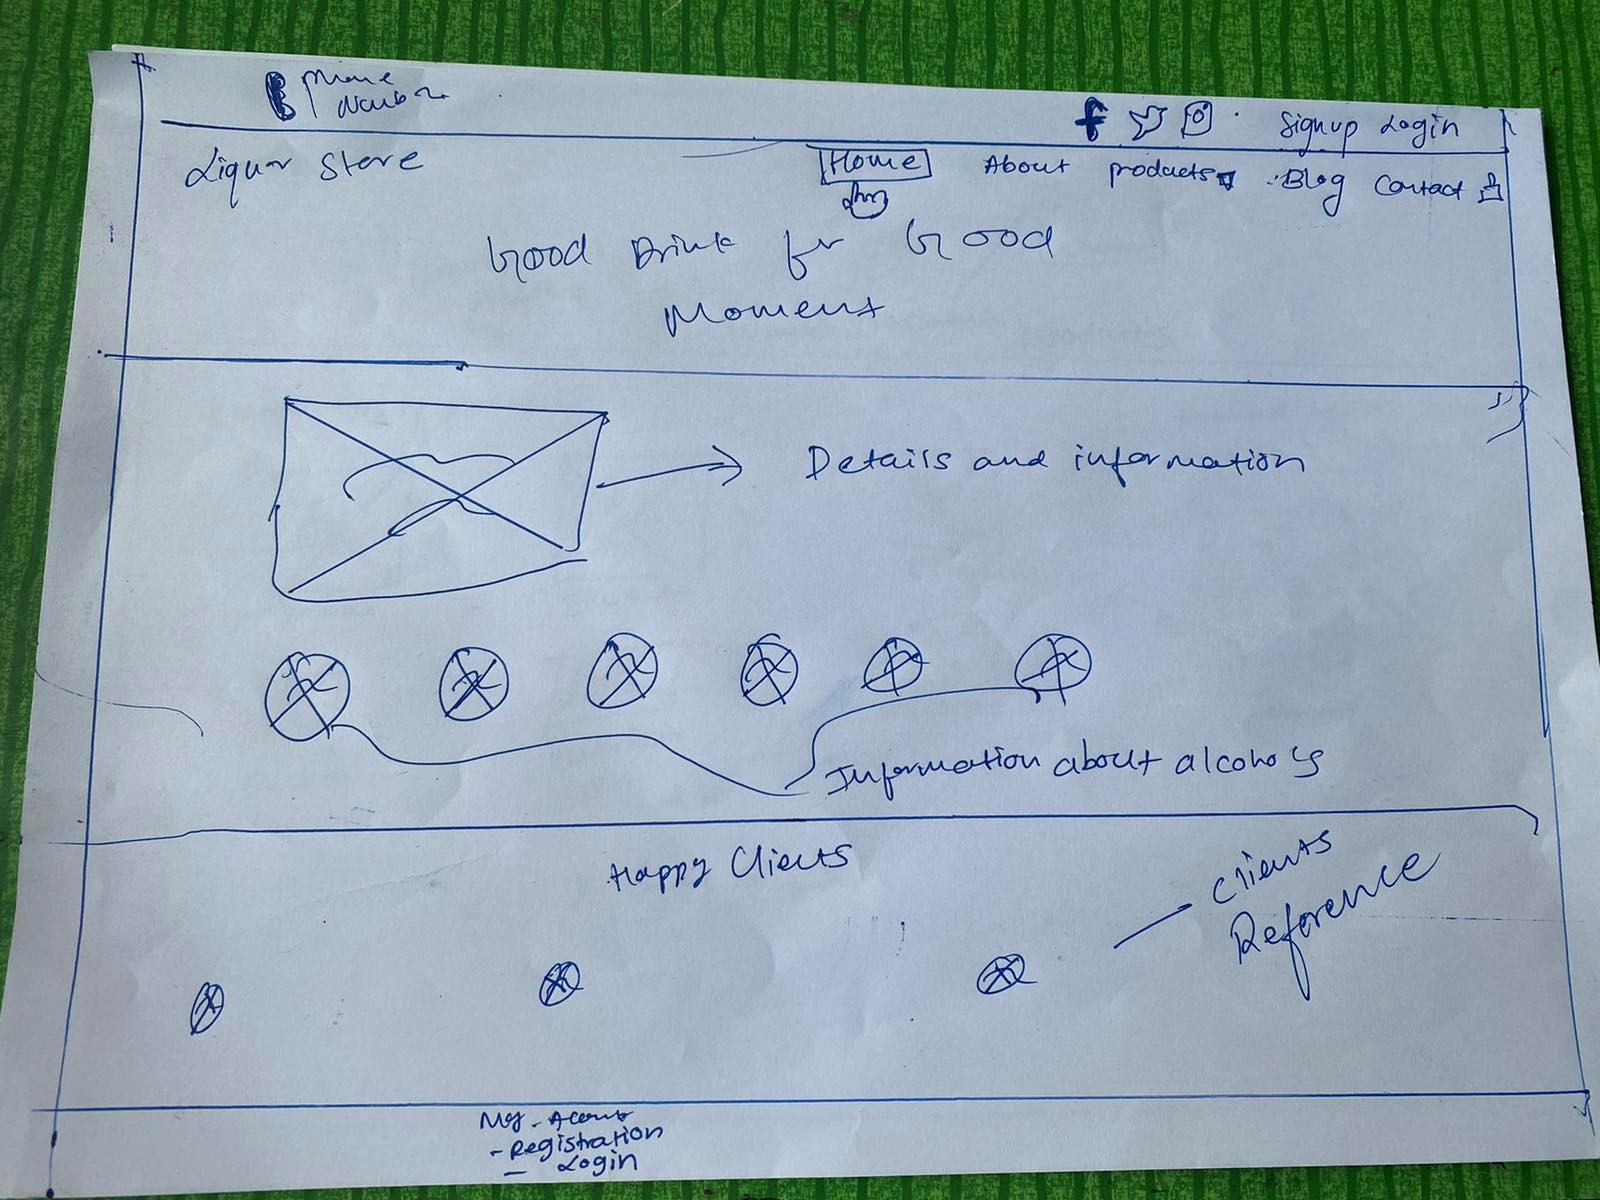 phone
Number
Signup Login
Liquor Store
Home About products Blog Contact
Good Drink for Good
Moment
Details and information
Information about alcohols
Happy Clients
clients
Reference
My - Acount
- Registration
- Login